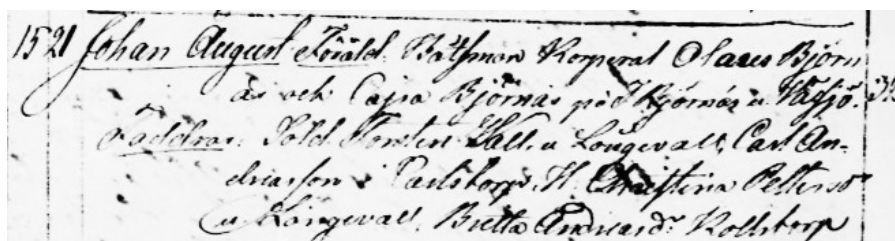 15 21 Johan August. Föräld. Båtsman Korperal Olaus Björn
ås och Cajsa Björnås på Björnås u. 3
Faddrar. Sold. Torsten Wall. u Långevall, Carl An-
driasson i H. Christina Petters
u Långevall, Britta Andreasdr